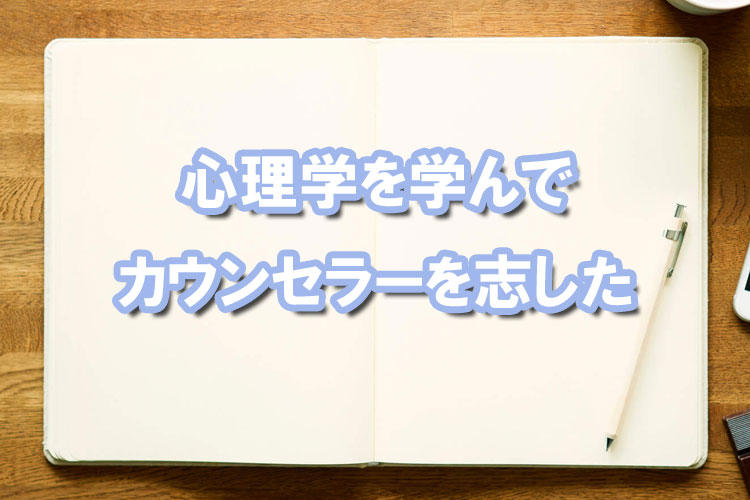 心理学を学んで
カウンセラーを志した